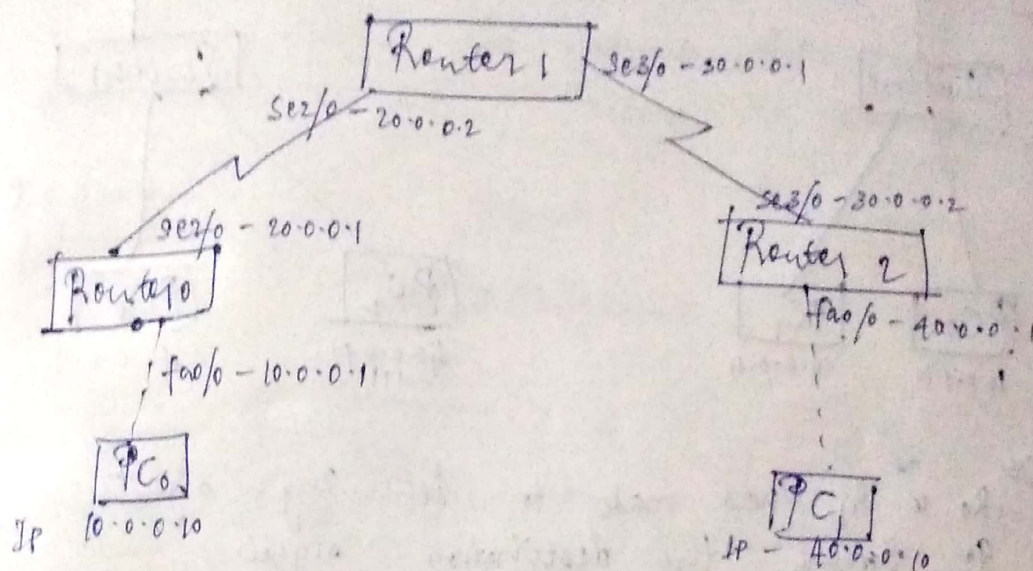 Router 1
se3/0 - 30.0.0.1
se2/0 - 20.0.0.2
se2/0 - 20.0.0.1
se3/0 - 30.0.0.2
Router 0
Router 2
fa0/0 - 10.0.0.1
fa0/0 - 40.0.0.1
PC0
PC1
IP 10.0.0.10
IP - 40.0.0.10